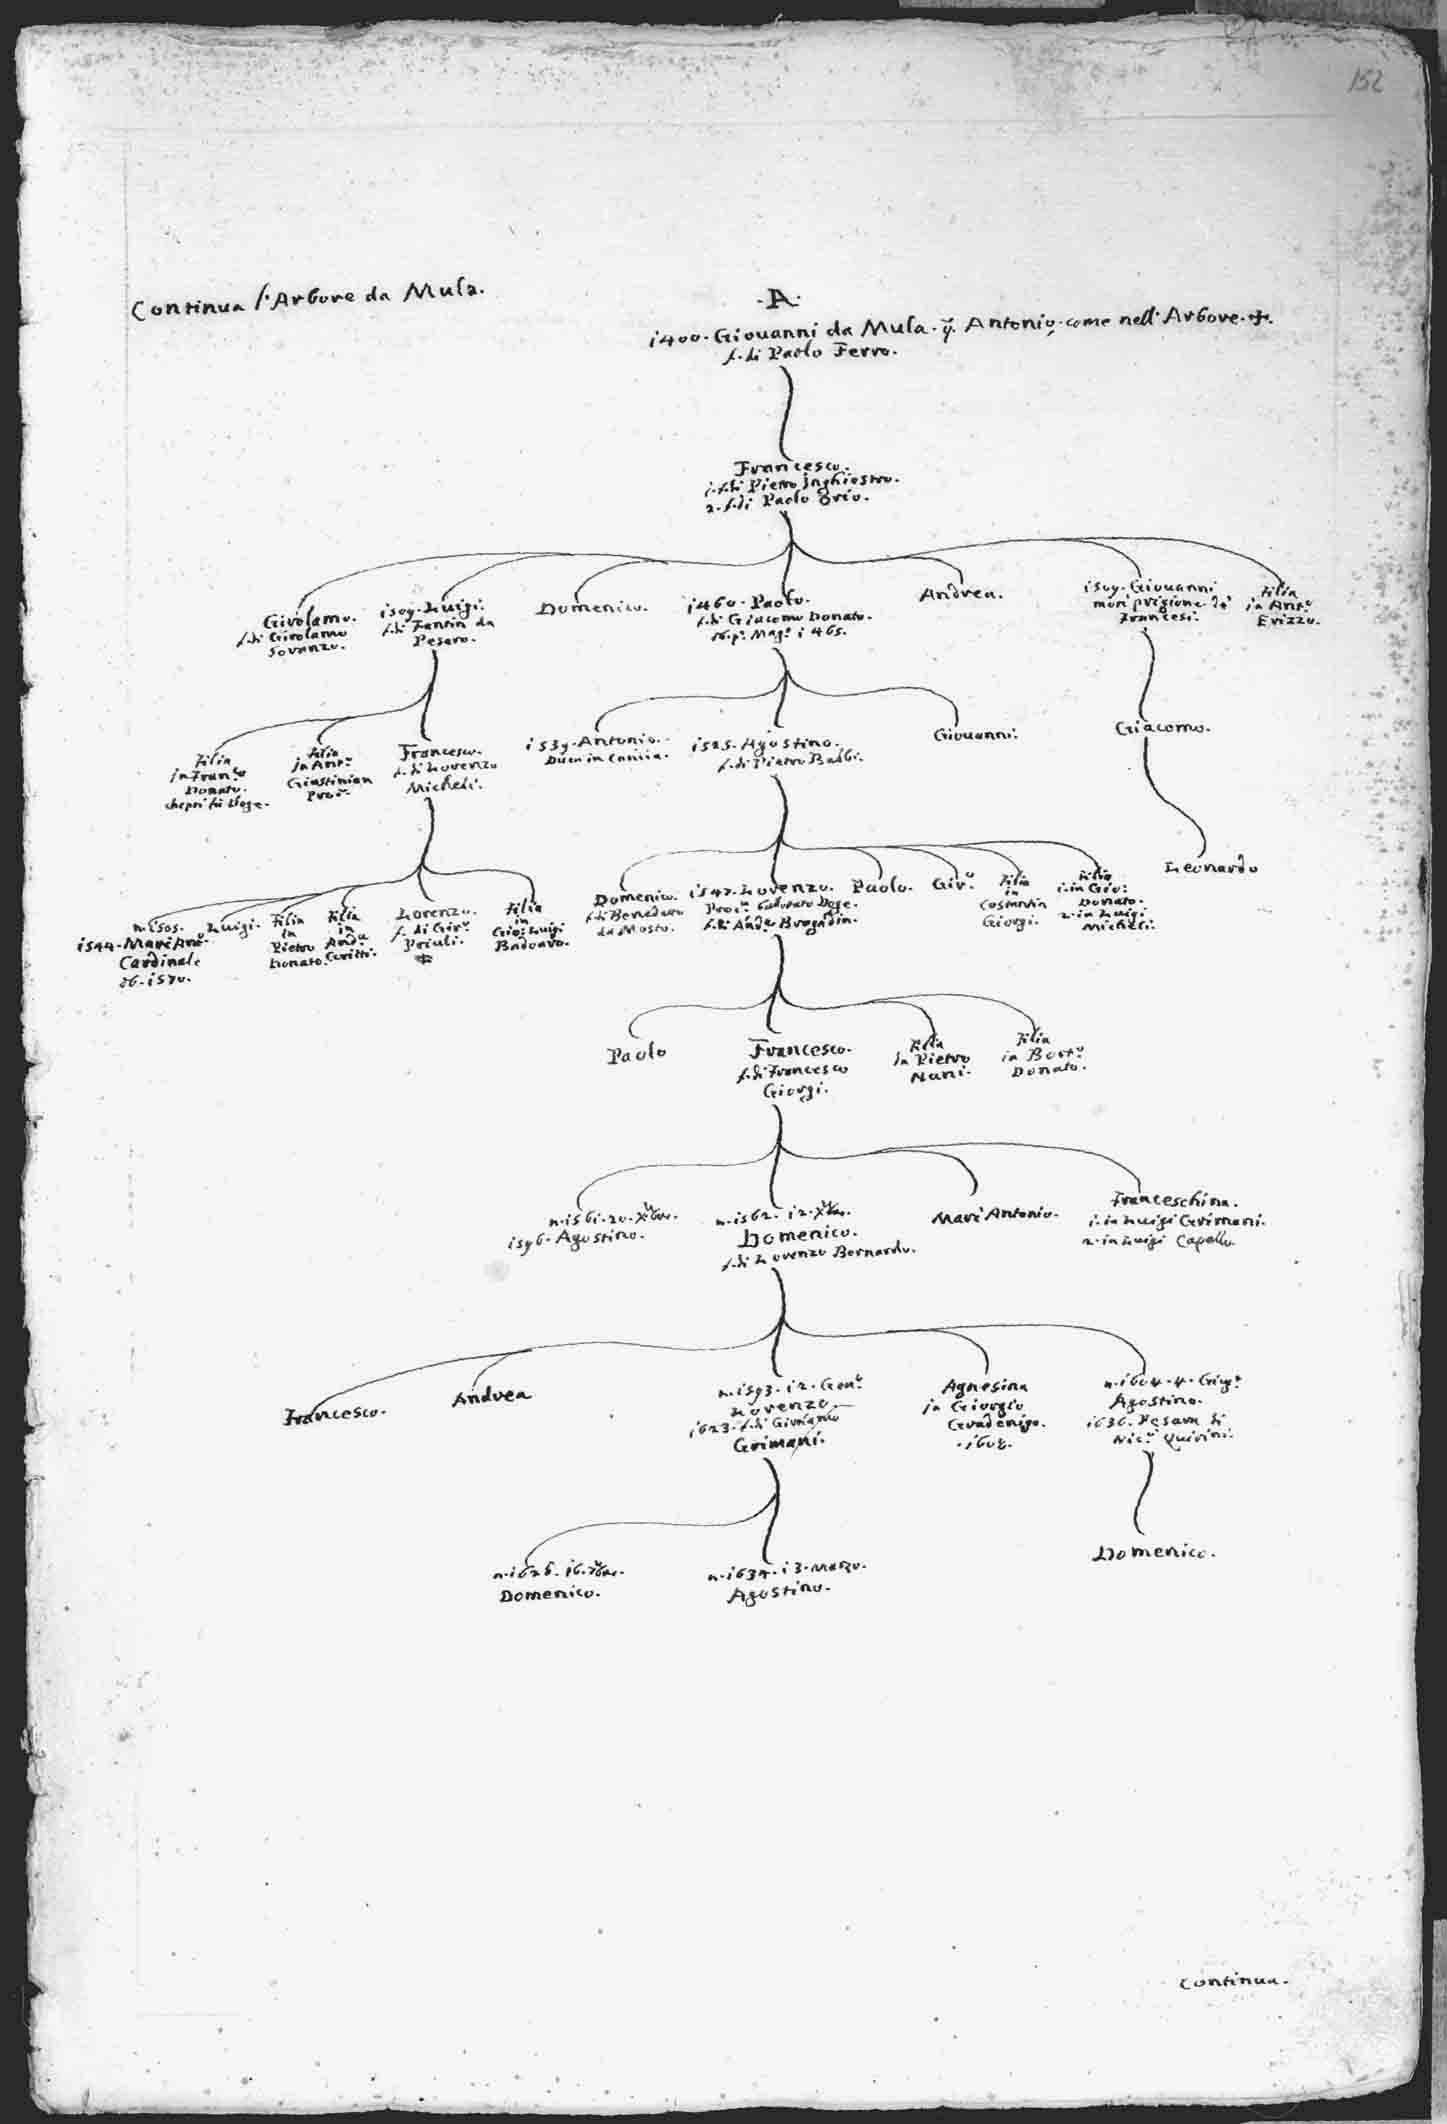 152
Continua l'Arbore da Mula.
·A·
1400. Giouanni da Mula. q. Antonio, come nell' Arbore. +.
f. di Paolo Ferro.
Francesco.
1. f. di Pietro Inghiestro.
2. f. di Paolo Orio.
Girolamo.
f. di Girolamo
Soranzo.
1509. Luigi.
f. di Fantin da
Pesaro.
Domenico.
1460. Paolo.
f. di Giacomo Donato.
16. pº. Magº. 1465.
Andrea.
1509. Giouanni
mori prigione de'
Francesi.
Filia
in Antº
Erizzo.
Filia
in Francº
Donato.
che poi fù Doge.
Filia
in Antº
Giustinian
Procr.
Francesco.
f. di Lorenzo
Micheli.
1539. Antonio.
Duca in Candia.
1525. Agostino.
f. di Pietro Balbi.
Giouanni.
Giacomo.
n. 1505.
1544. Mari Antº.
Cardinale
ob. 1570.
Luigi.
Filia
in
Pietro
Donato.
Filia
in
Andª
Gritti.
Lorenzo.
f. di Girº
Priuli.
Filia
in
Gio: Luigi
Badoaro.
Domenico.
f. di Benedetto
da Mosto.
1547. Lorenzo.
Procr
Doge.
f. di Andª Bragadin.
Paolo.
Girº
Filia
in
Costantin
Giorgi.
Filia
1. in Gio:
Donato.
2. in Luigi
Micheli.
Leonardo
Paolo
Francesco.
f. di Francesco
Giorgi.
Filia
in Pietro
Nani.
Filia
in Bortº
Donato.
n. 1561. 20. Xbre.
1596. Agostino.
n. 1562. 12. Xbre.
Domenico.
f. di Lorenzo Bernardo.
Mari Antonio.
Franceschina.
1. in Luigi Grimani.
2. in Luigi Capello.
Francesco.
Andrea
n. 1593. 12. Genº
Lorenzo.
1623. f. di Girolamo
Grimani.
Agnesina
in Giorgio
Gradenigo.
1608.
n. 1604. 4. Giugº
Agostino.
1636. Pesara di
Nicº Quirini.
n. 1626. 16.
Domenico.
n. 1634. 13. Marzo.
Agostino.
Domenico.
Continua.